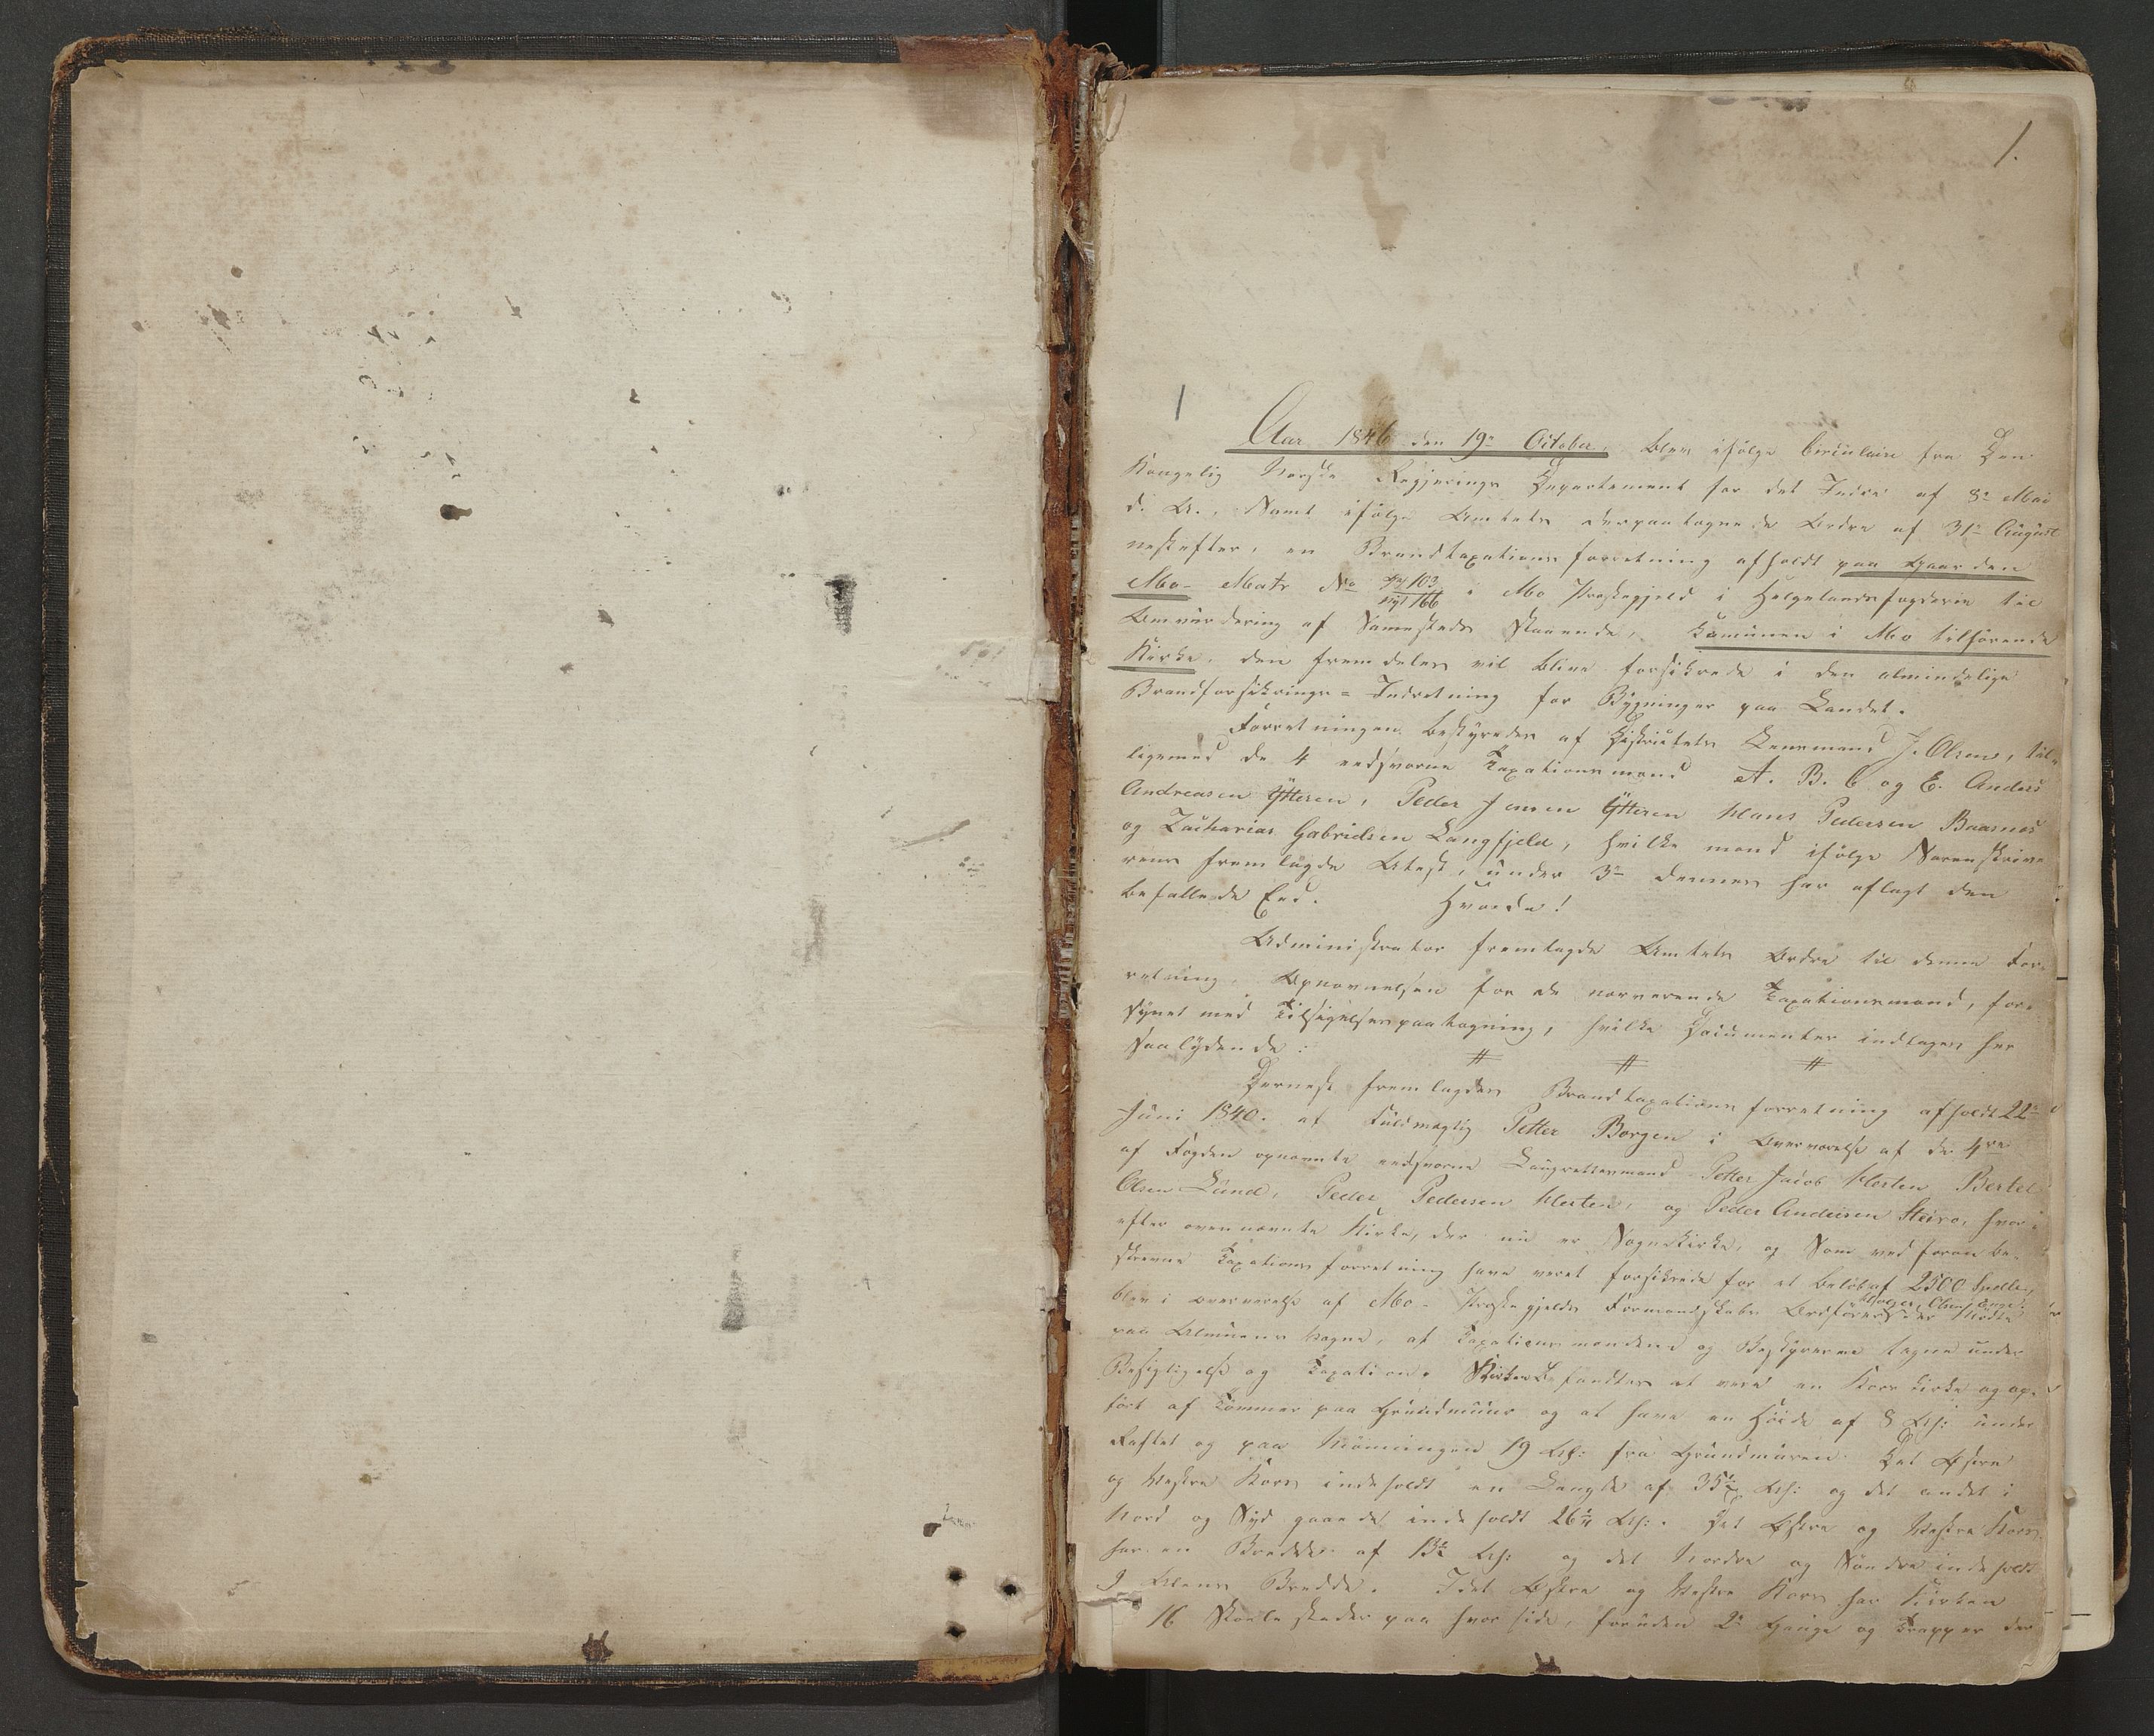 1.
1
Aar 1846 den 19de October, blev ifølge Circulaire fra Den
Kongelig Norske Regjerings Departement for det Indre af 8de Mai
d. A., samt ifølge Amtets derpaa tegnede Ordre af 31te August
nestefter, en Brandtaxationsforretning afholdt paa Gaarden
Mo Matr No gl 103 / nyt 166 i Mo Prestegjeld i Helgelands Fogderie til
Omvurdering af Sammesteds staaende, Komunen i Mo tilhørende
Kirke, den fremdeles vil blive forsikrede i den almindelige
Brandforsikrings=Indretning for Bygninger paa Landet.
Forretningen bestyredes af Distriktets Lensmand J. Olsen, til-
ligemed de 4 eedsvorne Taxationsmænd A. B. C og E. Anders
Andreasen Ytteren, Peder Jensen Ytteren Hans Pedersen Baasnes
og Zacharias Gabrielsen Langfjeld, hvilke mænd ifølge Sorenskrive
rens fremlagde Atest, under 3die dennes har aflagt den
befallede Eed. Hvorda!
Administrator fremlagde Amtets Ordre til denne For-
retning, Opnevnelsen for de nærværende Taxationsmænd, for-
synet med Tilsigelsespaategning, hvilke Documenter indtages her
saalydende: # # #
Dernest fremlagdes Brandtaxationsforretning afholdt 22de
Juni 1840. af Fuldmægtig Petter Borgen i Overværelse af de 4re
af Fogden opnevnte eedsvorne Laugrettesmænd Petter Jacob Hesten Bertel
Olsen Lund, Peder Pedersen Hesten, og Peder Andersen Steiro, hvor-
efter ovennævnte Kirke, der nu er Sognekirke, og som ved foran be-
skrevne Taxationsforretning have veret forsikrede for et beløb af 2500 Spdlr,
blev i overværelse af Mo-Prestegjelds Formandskabs Ordfører Holger Olsen Enge der Mødte
paa Almuens Vegne, af Taxationsmændene og Bestyreren tagne under
Besigtigelse og Taxation. Kirken befandtes at være en Kors Kirke og op-
ført af Tømmer paa Grundmuur og at have en Høide af 8 Al: under
Raftet og paa Mønningen 19 Al: fra Grundmuren. Det Østre
og Vestre Kors indeholdt en Længde af 35½ Al: og det andet i
Nord og Syd gaaende indeholdt 26¼ Al:. Det Østre og Vestre Kors
har en Bredde af 13½ Al: og det Nordre og Søndre indeholdt
9 Alens Bredde. I det Østre og Vestre Kors har Kirken
16 Stoele steder paa hver side, foruden 2de Gange og Trapper der